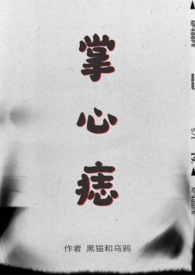 掌
心
痣
作者 黑猫和乌鸦